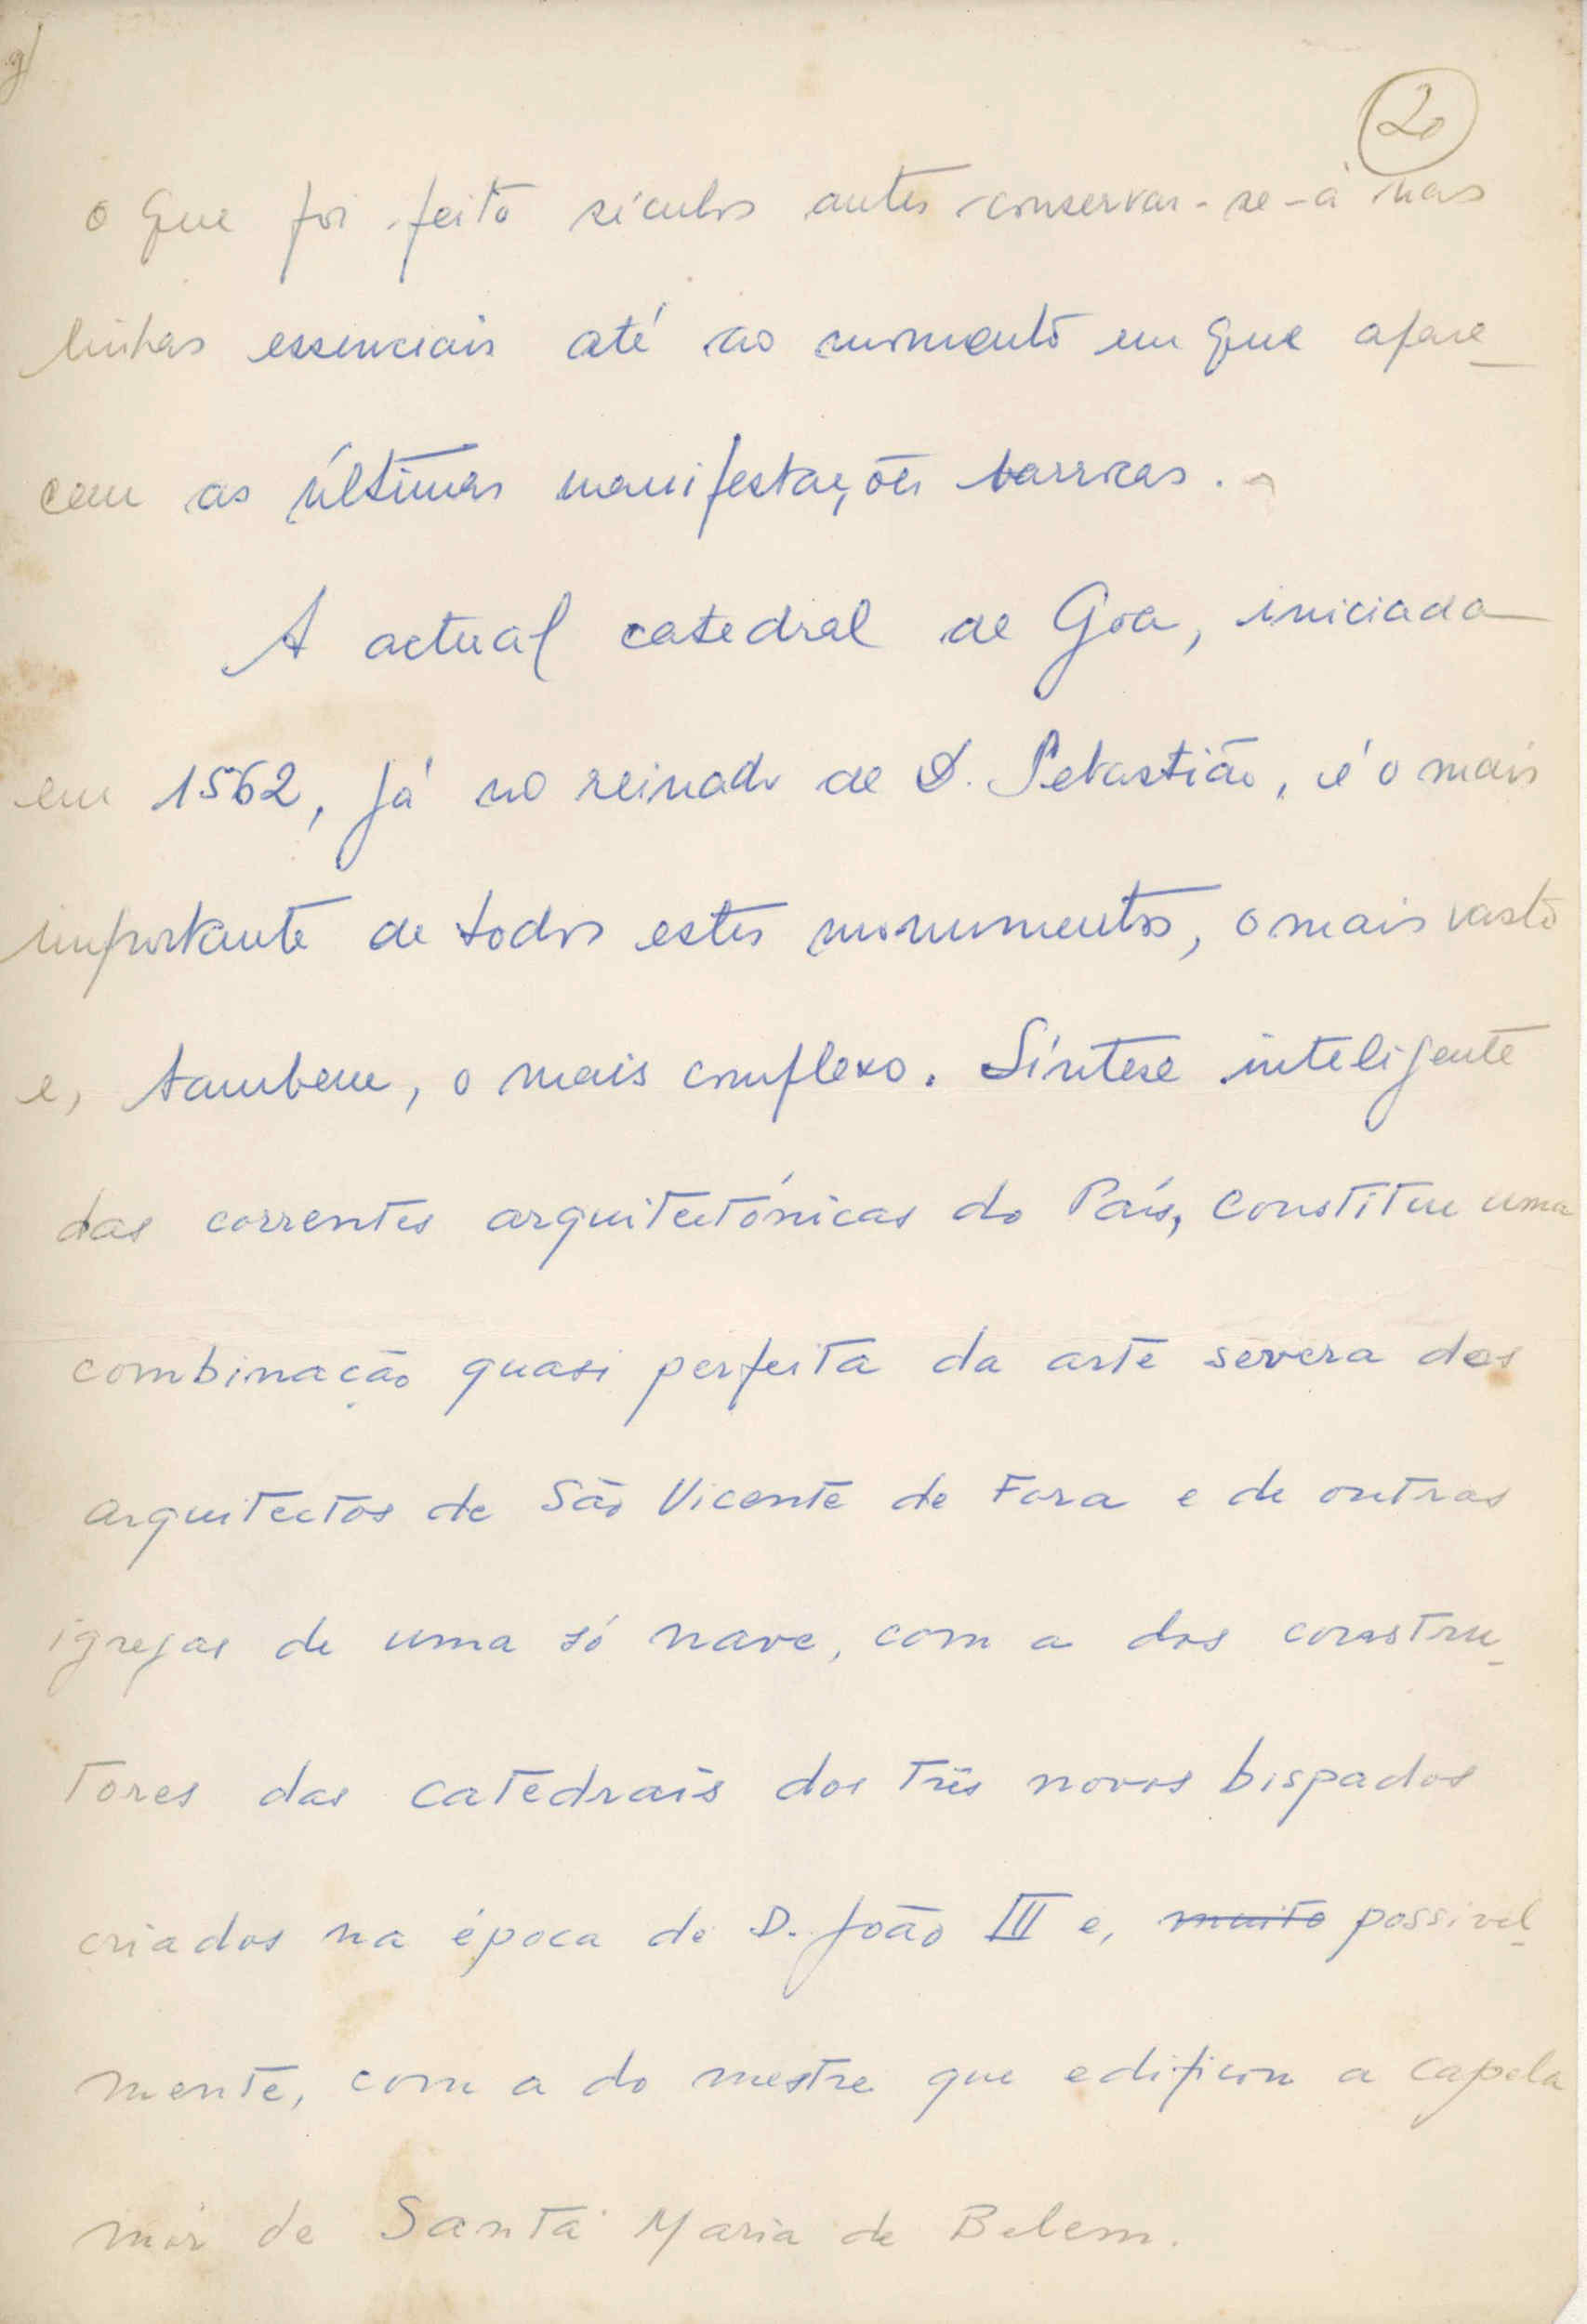 g)
20
o que foi feito séculos antes conservar-se-á nas
linhas essenciais até ao momento em que apare-
cem as últimas manifestações barrocas.
A actual catedral de Goa, iniciada
em 1562, já no reinado de D. Sebastião, é o mais
importante de todos estes monumentos, o mais vasto
e, tambem, o mais complexo. Síntese inteligente
das correntes arquitectónicas do País, constitue uma
combinação quasi perfeita da arte severa dos
arquitectos de São Vicente de Fora e de outras
igrejas de uma só nave, com a dos constru-
tores das catedrais dos três novos bispados
criados na época de D. João III e, muito possivel-
mente, com a do mestre que edificou a capela
mór de Santa Maria de Belem.